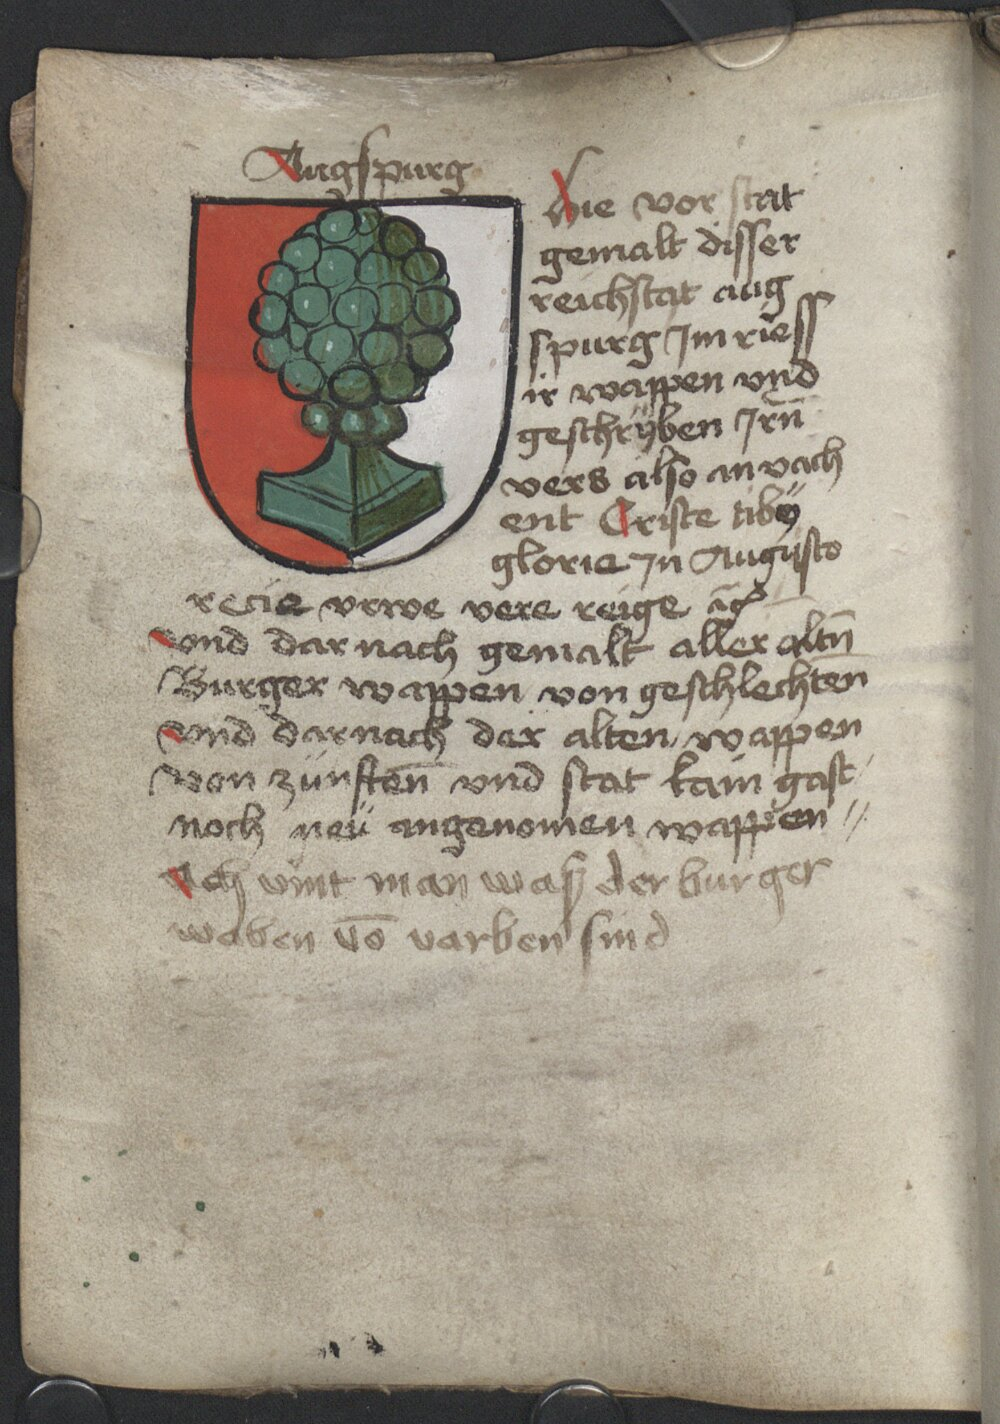 Augspurg
Hie vor stat
gemalt disser
reichstat aug
spurg Jm riess
ir wappen vnd
geschryben Jrn̄
vers also an vach
ent Criste tibÿ
glorie Jn Augusto
recie vrwe vere reige ac̄
vnd dar nach gemalt aller altn̄
Burger wappen von geschlechten̄
vnd darnach der alten wappen
von zünften̄ vnd stat kain gast
noch neü angenomen wappen //
Ach vint man waß der burger
waben vō varben sind